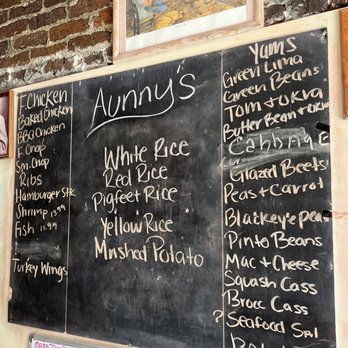 F. Chicken
Baked Chicken
BBQ Chicken
F. Chop
Sm. Chop
Ribs
Hamburger Stk
Shrimp 13.99
Fish 11.99
Turkey Wings
Aunny's
White Rice
Red Rice
Pigfeet Rice
Yellow Rice
Mashed Potato
Yams
Green Lima
Green Beans
Tom & Okra
Butter Bean & Okra
Cabbage
Glazed Beets
Peas & Carrot
Blatkeye peas
Pinto Beans
Mac & Cheese
Squash Cass
Brocc Cass
? Seafood Sal